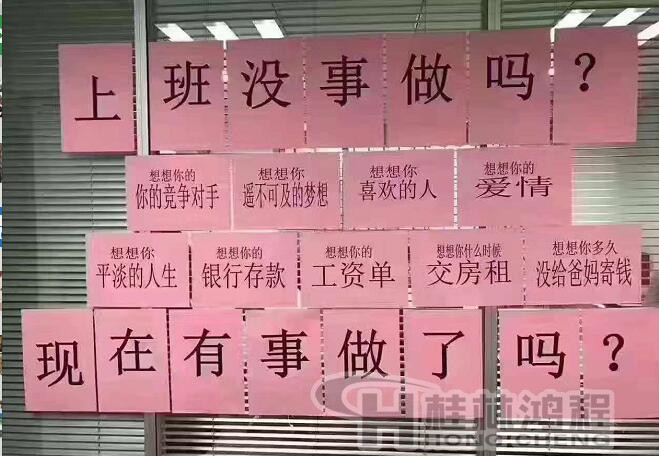 上班没事做吗？
想想你的 想想你 想想你 想想你的
你的竞争对手 遥不可及的梦想 喜欢的人 爱情
想想你 想想你的 想想你的 想想你什么时候 想想你多久
平淡的人生 银行存款 工资单 交房租 没给爸妈寄钱
现在有事做了吗？
桂林鸿程
HONG CHENG